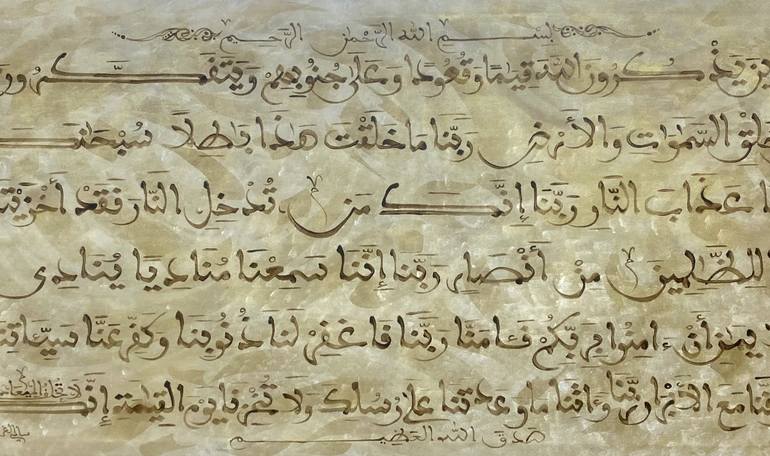 بسم الله الرحمن الرحيم
يذكرون الله قيما وقعودا وعلى جنوبهم ويتفكرون
خلق السموات والأرض ربنا ما خلقت هذا باطلا سبحنك
عذاب النار ربنا إنك من تدخل النار فقد أخزيته
للظلمين من أنصار ربنا إننا سمعنا مناديا ينادي
أن ءامنوا بربكم فـٔامنا ربنا فاغفر لنا ذنوبنا وكفر عنا سيـٔاتنا
مع الأبرار ربنا وءاتنا ما وعدتنا على رسلك ولا تخزنا يوم القيمة إنك لا تخلف الميعاد
صدق الله العظيم